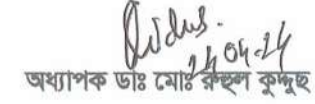 24.04.24
অধ্যাপক ডাঃ মোঃ রুহুল কুদ্দুছ